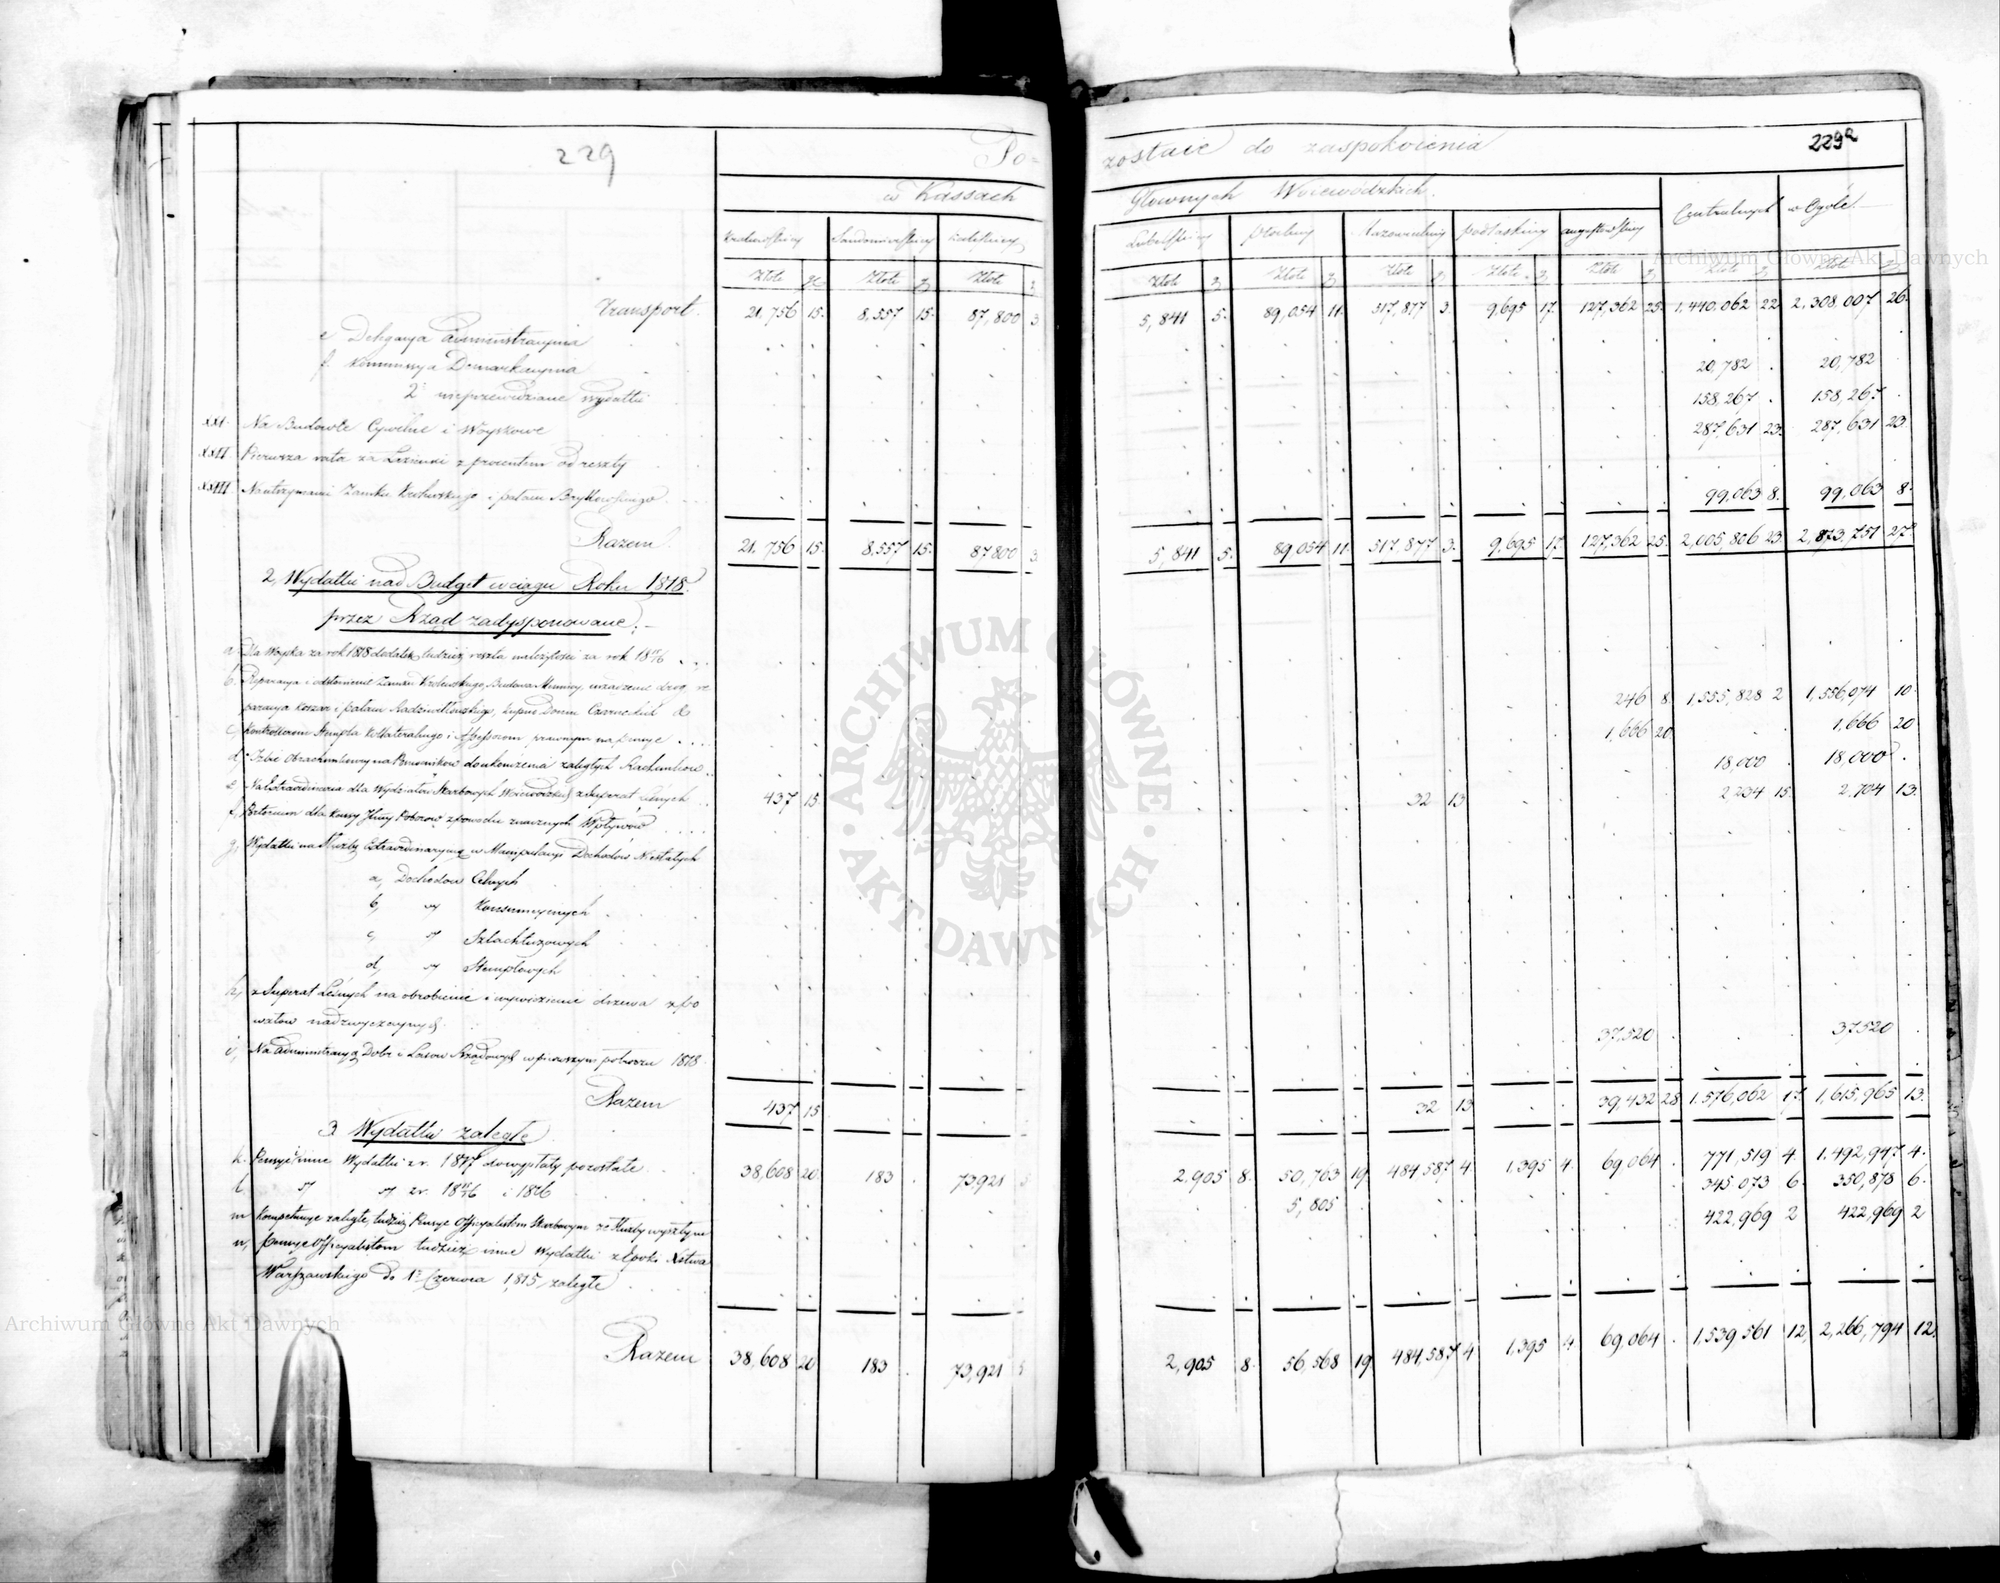 229
229a
Po=
zostaie do zaspokoienia
w Kassach
Głownych Woiewodzkich.
Centralnych
w Ogóle.
Krakowskiey
Sandomirskiey
Kaliskiey
Lubelskiey
Płockiey
Mazowieckiey
podlaskiey
augustowskiey
Złote gr Złote gr Złote
Złote gr Złote gr Złote gr Złote gr Złote gr Złote gr Złote gr
Transport. 21,756 15. 8,557 15. 87,800 3. 5,841 5. 89,054 11. 517,877 3. 9,695 17. 127,362 25. 1,440,062 22 2,308,007 26.
e Delegacya administracyina
f. Kommissya Demarkacyina 20,782 20,782
2° nieprzewidziane wydatki 158,267 158,267
XXI. Na Budowle Cywilne i Woyskowe 287,631 23. 287,631 23
XXII. Pierwsza rata za Łazienki z procentem od reszty
XXIII. Na utrzymanie Zamku Krolewskiego i pałacu Bryllowskiego 99,063 8. 99,063 8.
Razem. 21,756 15. 8,557 15. 87800 3 5,841 5. 89,054 11. 517,877 3. 9,695 17. 127,362 25. 2,005,806 23. 2,873,751 27.
2, Wydatki nad Budget w ciągu Roku 1818.
przez Rząd zadysponowane:
a Dla Woyska za rok 1818 dodatek, tudzież reszta należytości za rok 18 15/16
b. Reparacya i odsłonienie Zamku Krolewskiego, Budowa Mennicy, urządzenie drog, re
paracya koszar i pałacu Radziwiłłowskiego, kupno Domu 246 8. 1,555,828 2 1,556,074 10
c, Kontrollerom Stempla Kollateralnego i Assessorom prawnym na pensye 1,666 20 1,666 20
d, Izbie Obrachunkowey na Pomocnikow do ukończenia zaległych Rachunkow 18,000 18,000
e Na Extraordinaria dla Wydziałów Skarbowych Woiewodzkich z Superat Leśnych 437 15 32 13 2234 15. 2,704 13.
f, Pretorium dla Kassy Głney Poborow z powodu znacznych Wpływów
g, Wydatki na Służbę Extraordinaryiną w Manipulacyi Dochodów Niestałych
a, Dochodow Celnych
b, " Konsumcyinych
c, " Szlachtuzowych
d, " Stemplowych
h, z Superat Leśnych na obrobienie i wywiezienie drzewa z po
wałow nadzwyczaynych 37,520 37520
i, Na administracyą Dobr i Lasow Rządowych w pierwszym połroczu 1818
Razem 437 15 32 13 39,432 28 1,576,062 17. 1,615,965 13
3. Wydatki zaległe
k. Pensye i inne Wydatki z r. 1817 do wypłaty pozostałe 38,608 20. 183 73921 5 2,905 8. 50,763 19 484,587 4. 1,395 4. 69,064 771,519 4. 1,492,947 4.
l, " " z r. 18 15/16 i 1816 5,805 345,073 6. 350,878 6.
m Kompetencye zaległe, tudzież Pensye Officyalistom Skarbowym ze Służby wyszłym 422,969 2 422,969 2
n, Pensye Officyalistom tudzież inne Wydatki z Epoki Xstwa
Warszawskiego do 1° Czerwca 1815 zaległe
Razem 38,608 20 183 73,921 5 2,905 8. 56,568 19 484,587 4 1,395 4 69,064 1,539,561 12, 2,266,794 12.
Archiwum Główne Akt Dawnych
ARCHIWUM GŁÓWNE
AKT DAWNYCH
Archiwum Główne Akt Dawnych